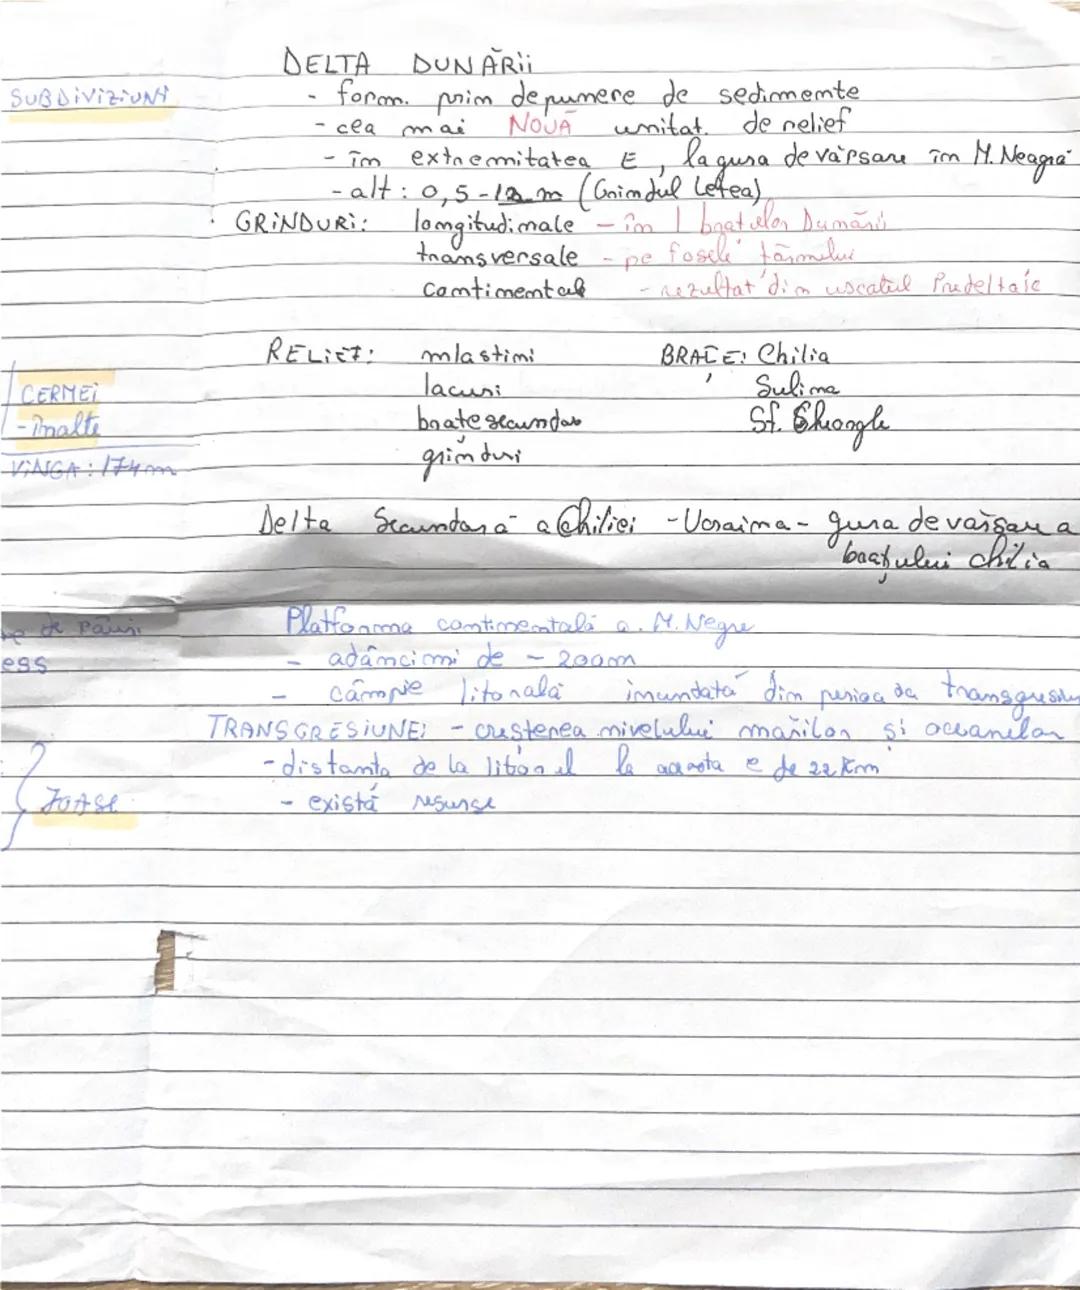 DELTA DUNĂRii
SUBDiViZiUNi
- form. prin depunere de sedimente
- cea mai NOUĂ unitat. de relief
- în extremitatea E, la gura de vărsare în M. Neagră
- alt: 0,5-12 m (Grindul Letea)
GRiNDURi: longitudinale - în l brațelor Dunării
transversale - pe fosele țărmului
continentale - rezultat din uscatul Predeltaic
RELiEF: mlastini BRAȚE: Chilia
CERMEi lacuri Sulina
- înalte brate secundar Sf. Gheorghe
VÎNGA: 174m grinduri
Delta Secundară a Chiliei - Ucraina - gura de vărsare a
brațului chilia
de păuri Platforma continentală a M. Negre
ess - adâncimi de - 200m
- câmpie litorală inundată din perioada transgresiun
TRANSGRESiUNE: - creșterea nivelului mărilor și oceanelor
- distanta de la litoral la aceasta e de 22 Km
JOASE - există resurse